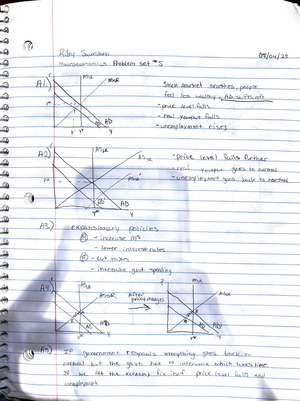 Riley Swanson
05/04/23
Macroeconomics Problem set #5
A1.)
Stock market crashes, people
feel less wealthy, AD shifts
- price level falls
- real output falls
- unemployment rises
AD
Y
A2.)
- price level falls further
- real output goes to normal
- unemployment goes back to normal
AD
Y
A3.) expansionary policies
- increase MS
- lower interest rates
- cut taxes
- increase govt spending
A4.)
After
policy changes
AD
Y
A5.) If government responds everything goes back to
normal but the govt. has to intervene which takes time.
If we let the economy fix itself price level falls and
unemployment